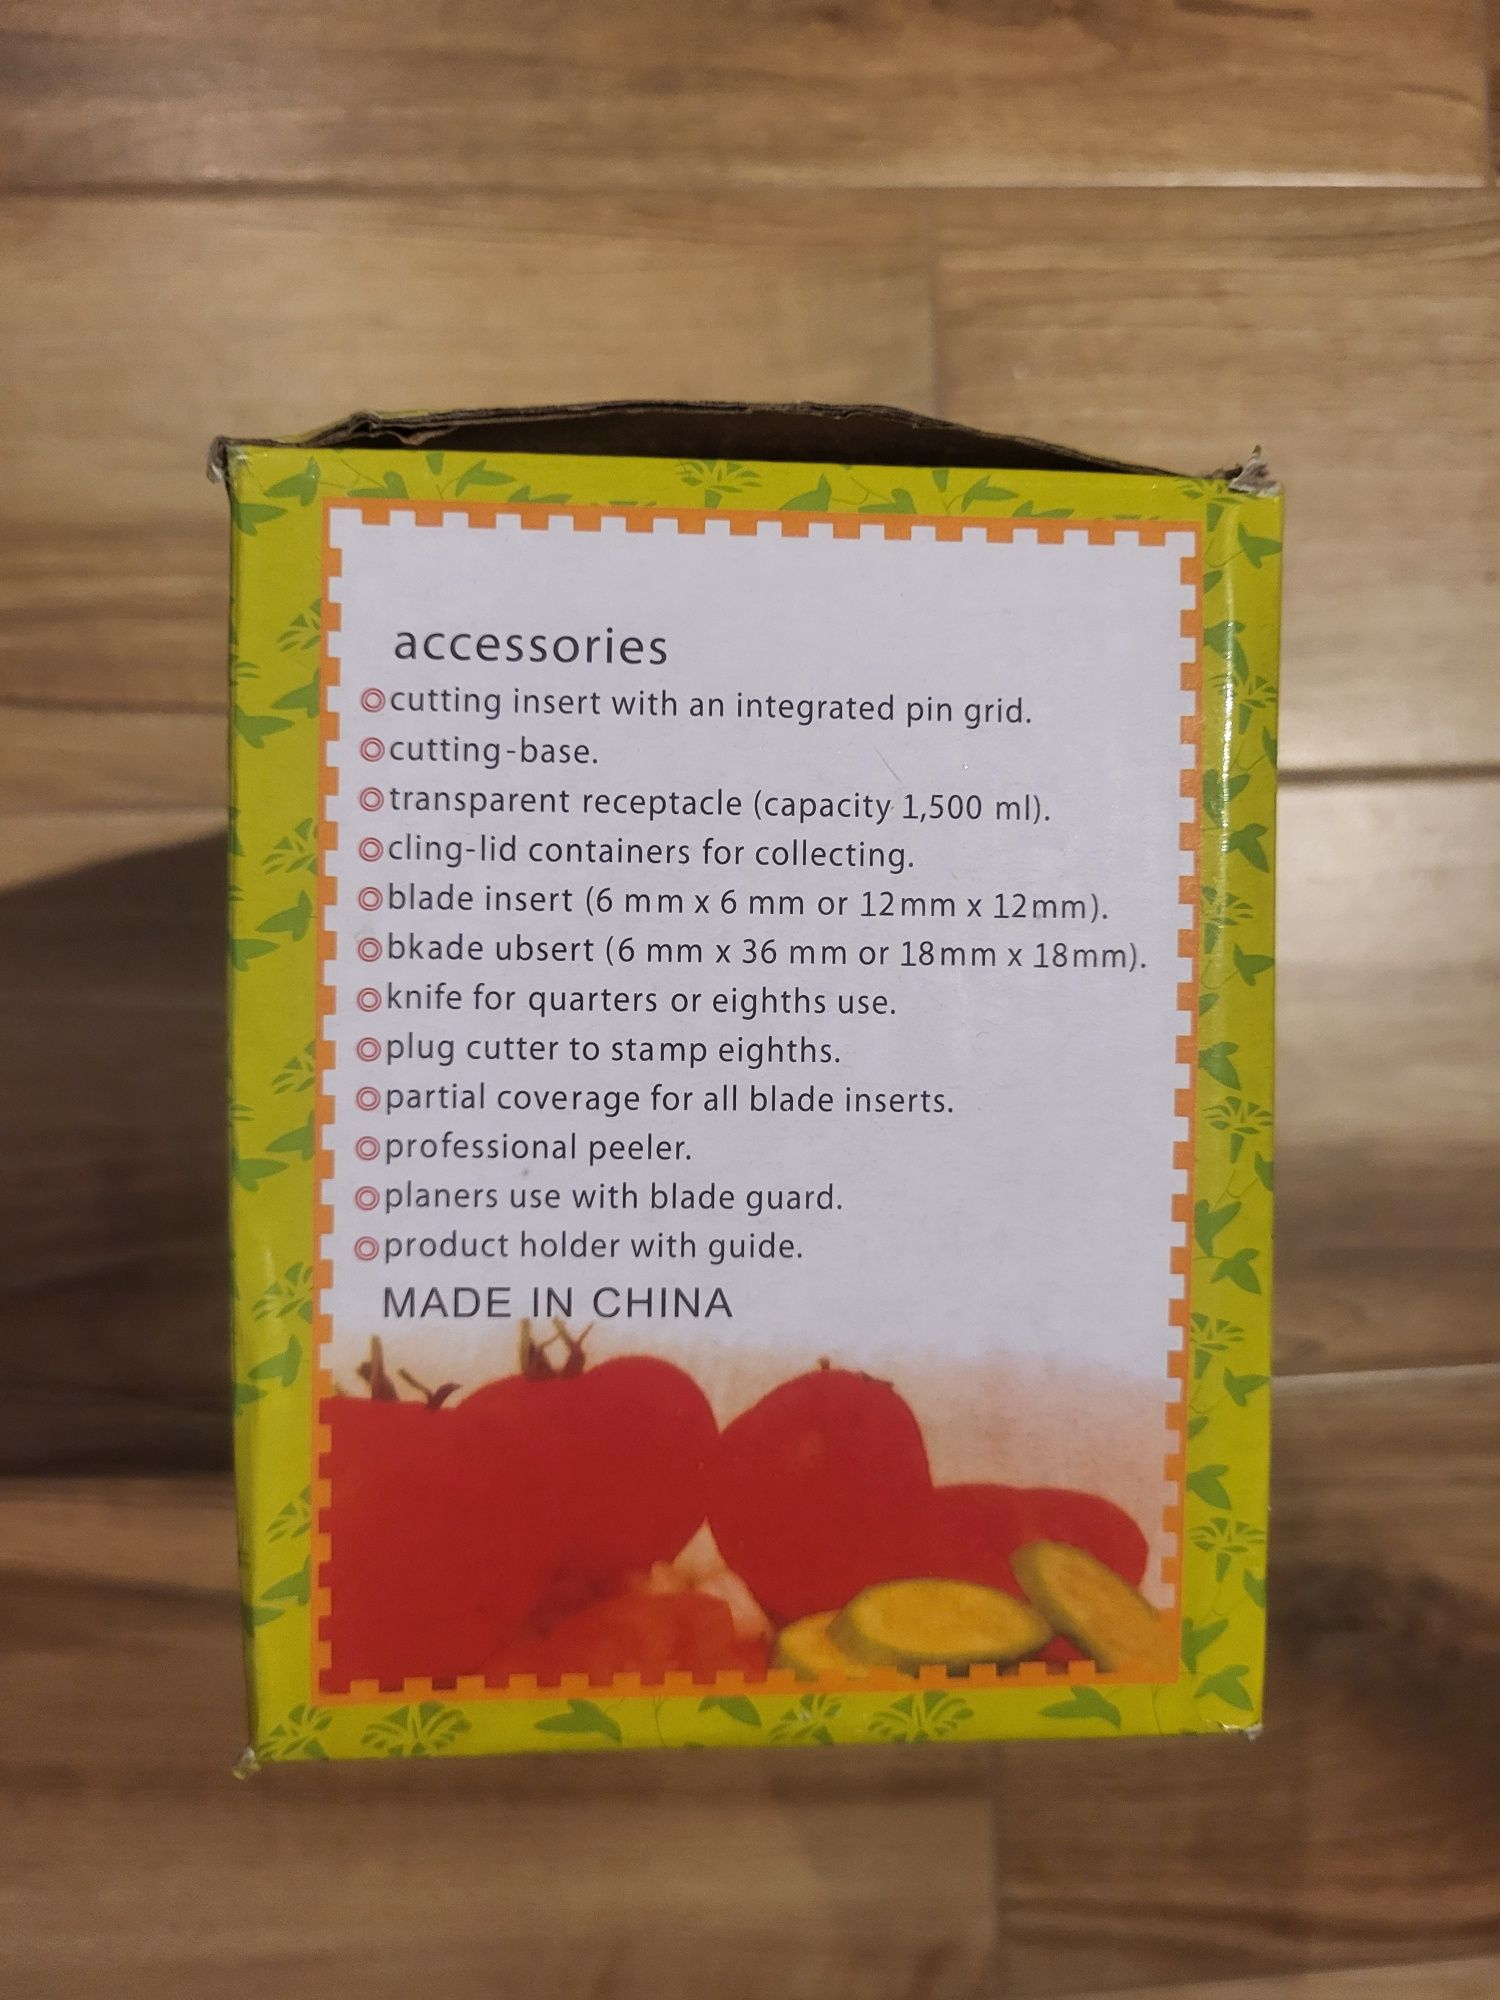 accessories
cutting insert with an integrated pin grid.
cutting-base.
transparent receptacle (capacity 1,500 ml).
cling-lid containers for collecting.
blade insert (6 mm x 6 mm or 12mm x 12mm).
bkade ubsert (6 mm x 36 mm or 18mm x 18mm).
knife for quarters or eighths use.
plug cutter to stamp eighths.
partial coverage for all blade inserts.
professional peeler.
planers use with blade guard.
product holder with guide.
MADE IN CHINA